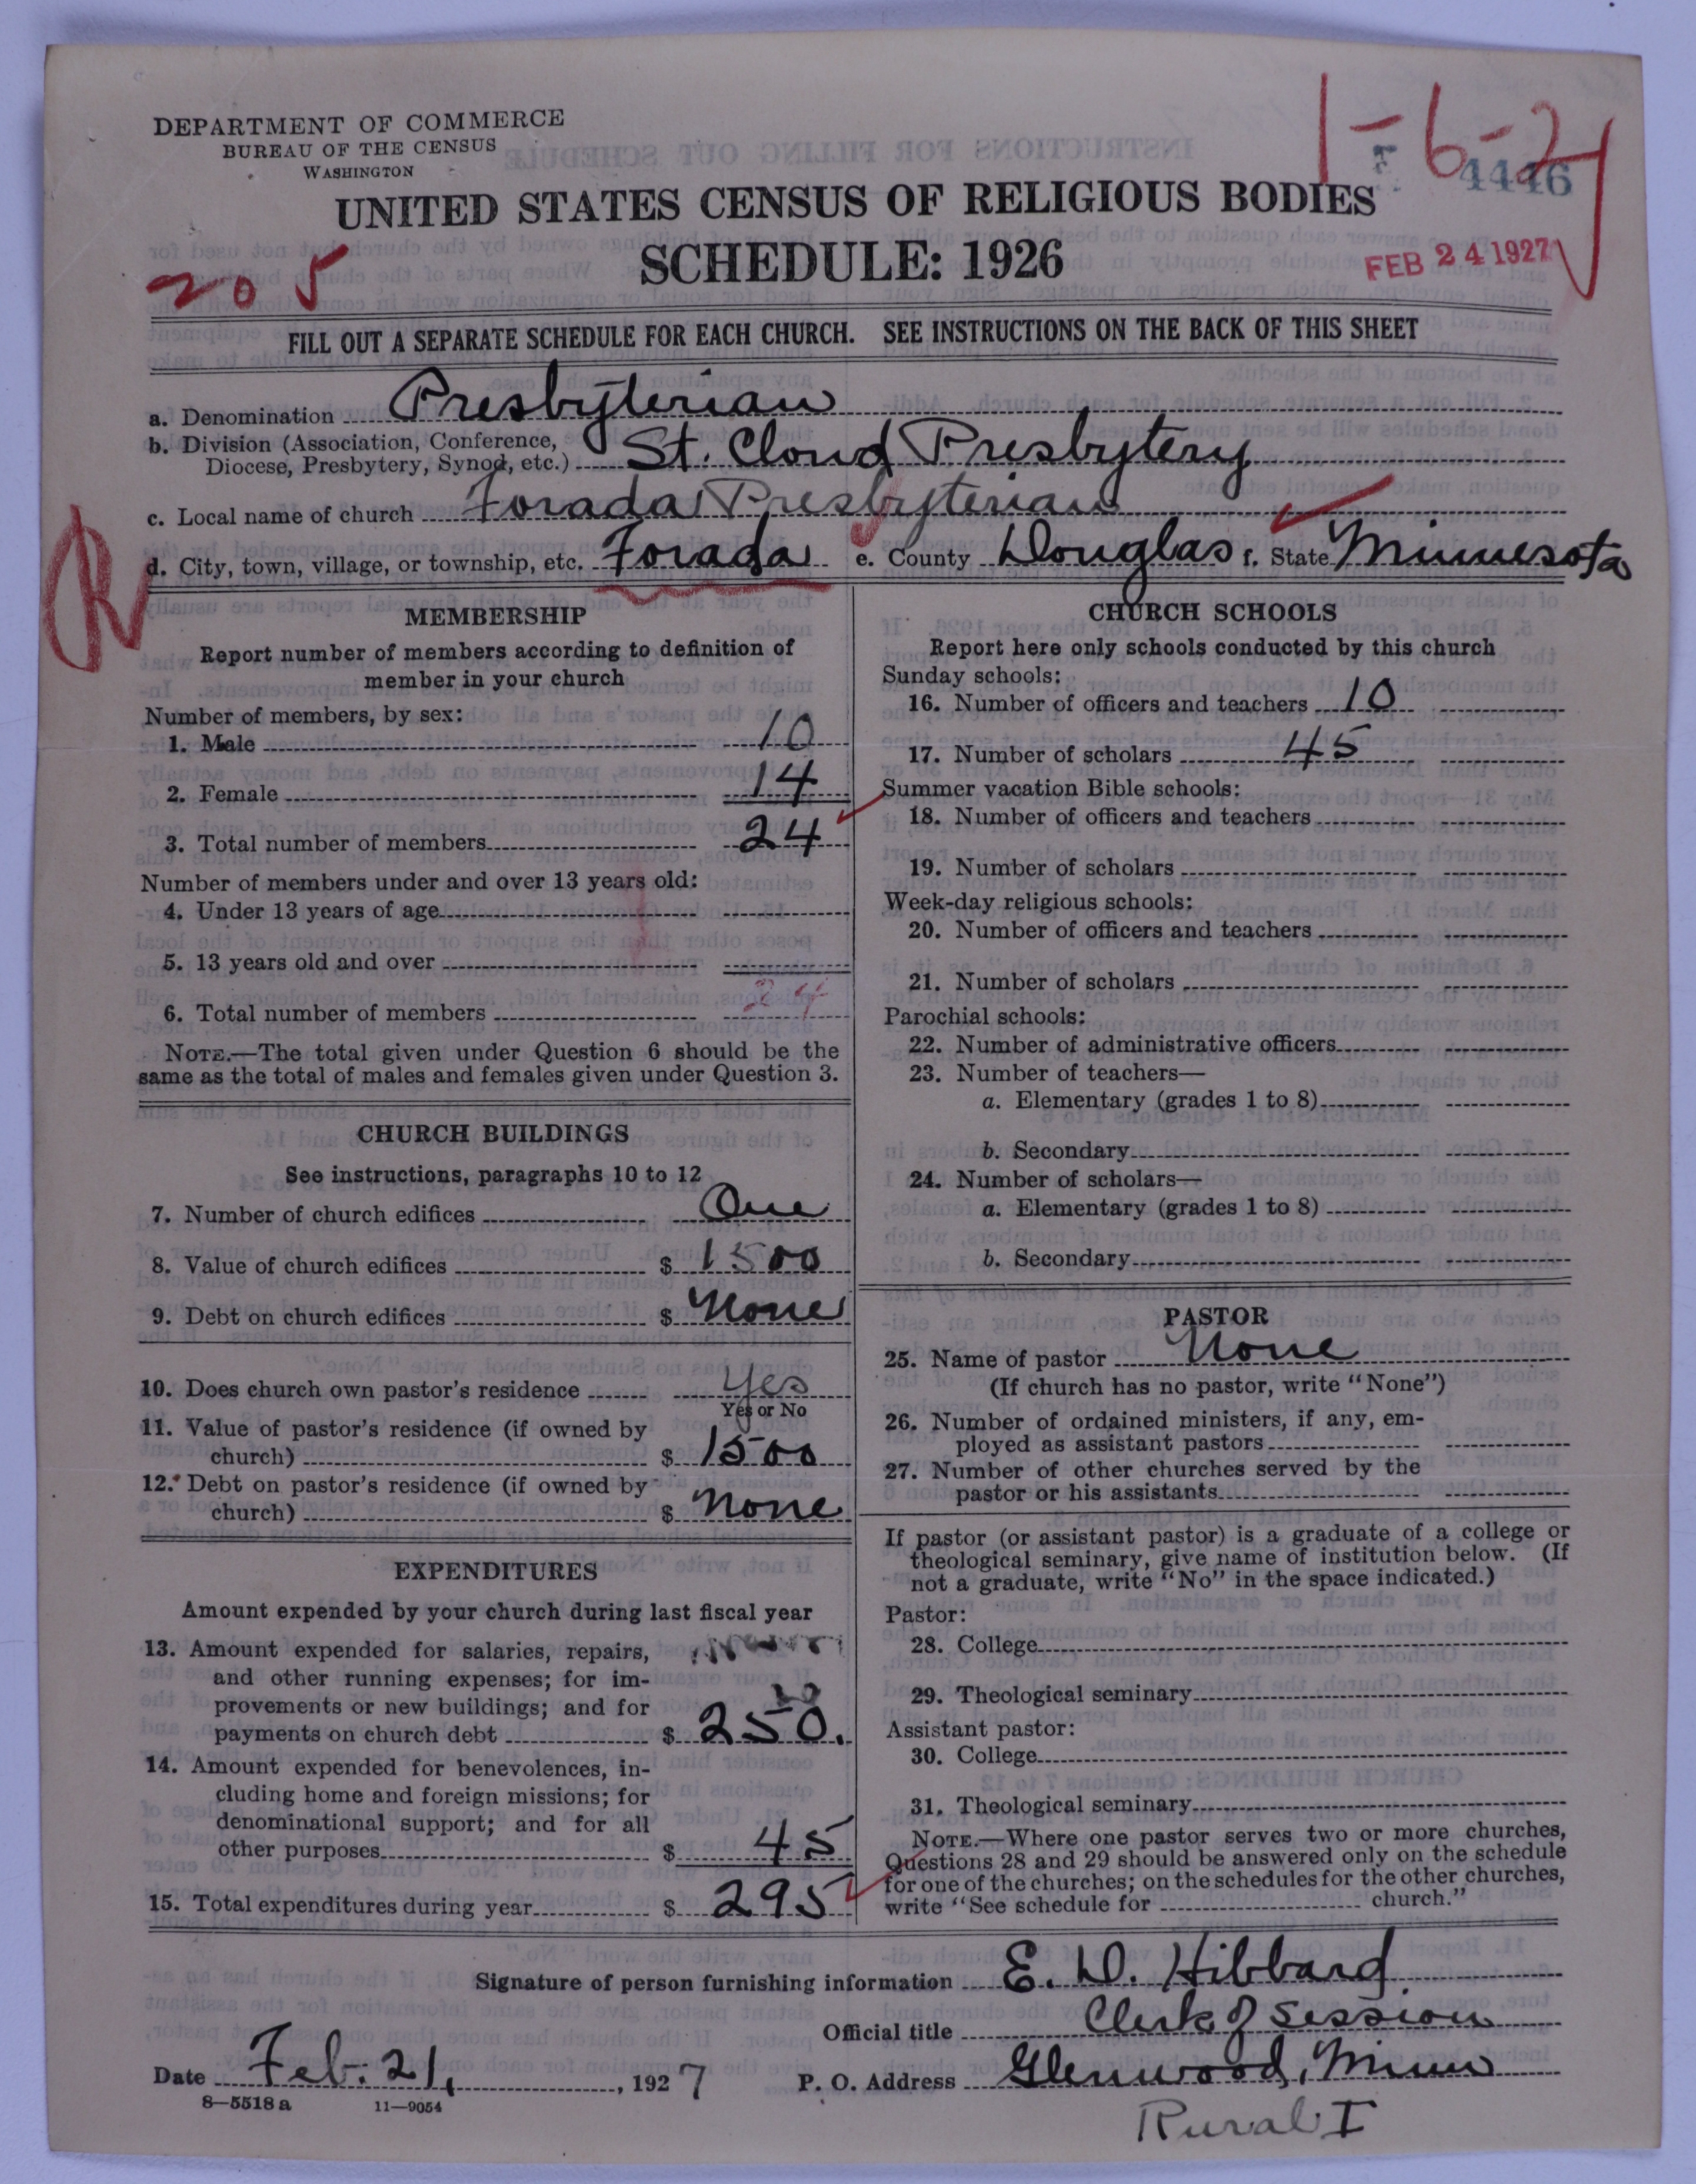 DEPARTMENT OF COMMERCE
BUREAU OF THE CENSUS
WASHINGTON
1-6-2
4446
UNITED STATES CENSUS OF RELIGIOUS BODIES
SCHEDULE: 1926
FEB 24 1927
205
FILL OUT A SEPARATE SCHEDULE FOR EACH CHURCH. SEE INSTRUCTIONS ON THE BACK OF THIS SHEET
a. Denomination Presbyterian
b. Division (Association, Conference,
Diocese, Presbytery, Synod, etc.) St. Cloud Presbytery
c. Local name of church Forada Presbyterian
d. City, town, village, or township, etc. Forada e. County Douglas f. State Minnesota
R
MEMBERSHIP
Report number of members according to definition of
member in your church
Number of members, by sex:
1. Male 10
2. Female 14
3. Total number of members 24
Number of members under and over 13 years old:
4. Under 13 years of age
5. 13 years old and over
6. Total number of members 24
NOTE.—The total given under Question 6 should be the
same as the total of males and females given under Question 3.
CHURCH BUILDINGS
See instructions, paragraphs 10 to 12
7. Number of church edifices One
8. Value of church edifices $ 1500
9. Debt on church edifices $ None
10. Does church own pastor's residence Yes
Yes or No
11. Value of pastor's residence (if owned by
church) $ 1500
12. Debt on pastor's residence (if owned by
church) $ None
EXPENDITURES
Amount expended by your church during last fiscal year
13. Amount expended for salaries, repairs,
and other running expenses; for im-
provements or new buildings; and for
payments on church debt $ 250.
14. Amount expended for benevolences, in-
cluding home and foreign missions; for
denominational support; and for all
other purposes $ 45
15. Total expenditures during year $ 295
CHURCH SCHOOLS
Report here only schools conducted by this church
Sunday schools:
16. Number of officers and teachers 10
17. Number of scholars 45
Summer vacation Bible schools:
18. Number of officers and teachers
19. Number of scholars
Week-day religious schools:
20. Number of officers and teachers
21. Number of scholars
Parochial schools:
22. Number of administrative officers
23. Number of teachers—
a. Elementary (grades 1 to 8)
b. Secondary
24. Number of scholars—
a. Elementary (grades 1 to 8)
b. Secondary
PASTOR
25. Name of pastor None
(If church has no pastor, write "None")
26. Number of ordained ministers, if any, em-
ployed as assistant pastors
27. Number of other churches served by the
pastor or his assistants
If pastor (or assistant pastor) is a graduate of a college or
theological seminary, give name of institution below. (If
not a graduate, write "No" in the space indicated.)
Pastor:
28. College
29. Theological seminary
Assistant pastor:
30. College
31. Theological seminary
NOTE.—Where one pastor serves two or more churches,
Questions 28 and 29 should be answered only on the schedule
for one of the churches; on the schedules for the other churches,
write "See schedule for church."
Signature of person furnishing information E. D. Hibbard
Official title Clerk of Session
Date Feb. 21, 1927 P. O. Address Glenwood, Minn
8—5518 a 11—9054
Rural I